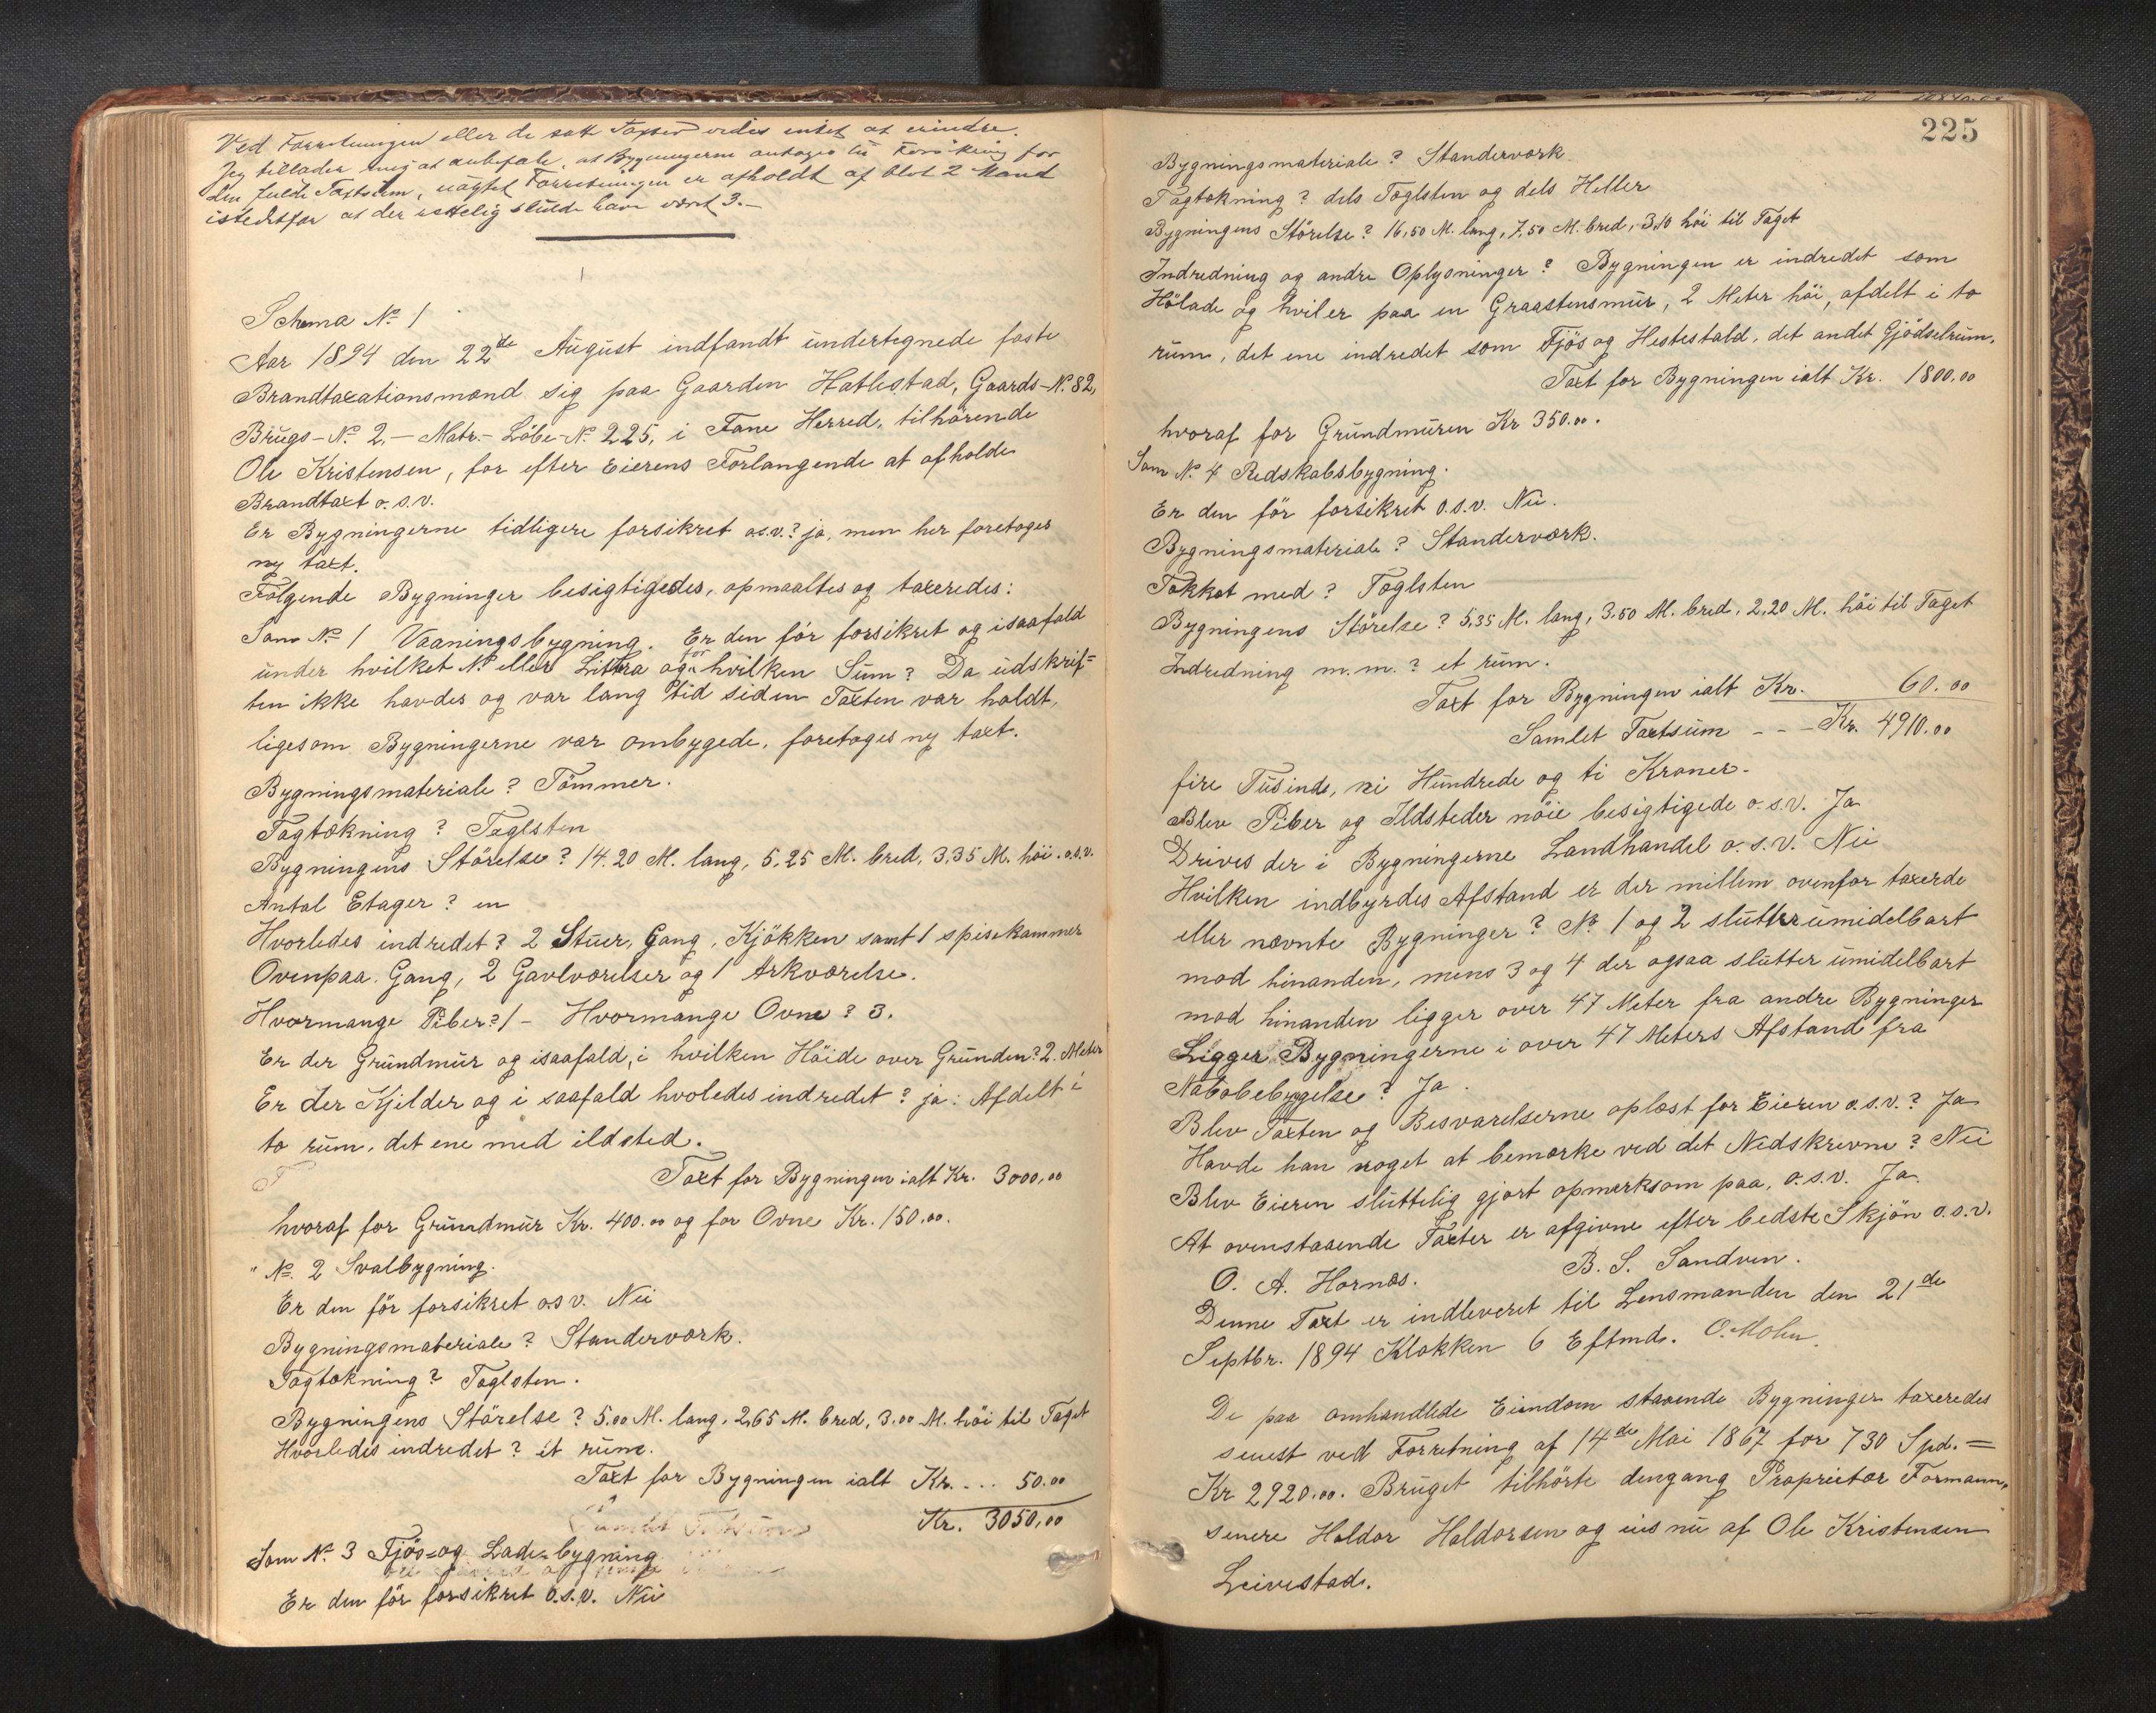 Ved Forretningen eller de satte Taxter vides intet at erindre.
Jeg tillader mig at anbefale, at Bygningerne antages til Forsikring for
den fulde Taxtsum, uagtet Forretningen er afholdt af blot 2 Mand
istedetfor at der rettelig skulde have været 3.—
Schema № 1
Aar 1894 den 22de August indfandt undertegnede faste
Brandtaxationsmænd sig paa Gaarden Hatlestad, Gaards-№ 82,
Brugs-№ 2.— Matr.- Löbe-№ 225, i Fane Herred, tilhörende
Ole Kristensen, for efter Eierens Forlangende at afholde
Brandtaxt o.s.v.
Er Bygningerne tidligere forsikret o.s.v.? ja, men her foretages
ny taxt.
Fölgende Bygninger besigtigedes, opmaaltes og taxeredes:
Som № 1 Vaaningsbygning. Er den för forsikret og isaafald
under hvilket № eller Littra og for hvilken Sum? Da udskrif=
ten ikke havdes og var lang tid siden Taxten var holdt,
ligesom Bygningerne var ombygede, foretages ny taxt.
Bygningsmateriale? Tömmer.
Tagtækning? Taglsten
Bygningens Störelse? 14.20 M. lang, 5,25 M. bred, 3,35 M. höi. o.s.v.
Antal Etager? en
Hvorledes indredet? 2 Stuer, Gang, Kjökken samt 1 spisekammer
Ovenpaa. Gang, 2 Gavlværelser og 1 Arkværelse.
Hvormange Piber? 1 – Hvormange Ovne? 3.
Er der Grundmur og isaafald, i hvilken Höide over Grunden? 2. Meter
Er der Kjelder og i saafald hvoledes indredet? ja: Afdelt i
to rum, det ene med ildsted.
Taxt for Bygningen ialt Kr. 3000,00
hvoraf for Grundmur Kr. 400.00 og for Ovne Kr. 150,00.
" №. 2 Svalbygning.
Er den för forsikret o.s.v. Nei
Bygningsmateriale? Standerværk.
Tagtækning? Taglsten.
Bygningens Störelse? 5.00 M. lang, 2,65 M. bred, 3.00 M. höi til Taget
Hvorledes indredet? et rum.
Taxt for Bygningen ialt Kr. ... 50.00
Kr. 3050,00
Som № 3 Fjös- og Lade-bygning
Er den för forsikret o.s.v. Nei
225
Bygningsmateriale? Standerværk
Tagtækning? dels Taglsten og dels Heller
Bygningens Störelse? 16,50 M. lang, 7,50 M. bred, 3,10 höi til Taget
Indredning og andre Oplysninger? Bygningen er indredet som
Hölade og hviler paa en Graastensmur, 2 Meter höi, afdelt i to
rum, det ene indredet som Fjös og Hestestald, det andet Gjödselrum.
Taxt for Bygningen ialt Kr. 1800,00
hvoraf for Grundmuren Kr 350.00.
Som № 4 Redskabsbygning.
Er den för forsikret o.s.v. Nei.
Bygningsmateriale? Standerværk.
Tækket med? Taglsten
Bygningens Störelse? 5,35 M. lang, 3,50 M. bred, 2,20 M. höi til Taget
Indredning m.m.? et rum.
Taxt for Bygningen ialt Kr. 60.00
Samlet Taxtsum - - - Kr. 4910.00
fire Tusinde, ni Hundrede og ti Kroner-
Blev Piber og Ildsteder nöie besigtigede o.s.v. Ja
Drives der i Bygningerne Landhandel o.s.v. Nei
Hvilken indbyrdes Afstand er der mellem ovenfor taxerde
eller nævnte Bygninger? № 1 og 2 slutter umidelbart
mod hinanden, mens 3 og 4 der ogsaa slutter umidelbart
mod hinanden ligger over 47 Meter fra andre Bygninger
Ligger Bygningerne i over 47 Meters Afstand fra
Nabobebygelse? Ja.
Blev Taxten og Besvarelserne oplæst for Eieren o.s.v.? Ja
Havde han noget at bemærke ved det Nedskrevne? Nei
Blev Eieren sluttelig gjort opmerksom paa, o.s.v. Ja.
At ovenstaaende Taxter er afgivne efter bedste Skjön o.s.v.
O. A. Hornæs. B. S. Sandven.
Denne Taxt er indleveret til Lensmanden den 21de
Septbr. 1894 Klokken 6 Eftmd. O. Mohn
De paa omhandlede Eiendom staaende Bygninger taxeredes
senest ved Forretning af 14de Mai 1867 for 730 Spd. =
Kr 2920.00. Bruget tilhörte dengang Proprietær Formann,
senere Haldor Haldorsen og eies nu af Ole Kristensen
Leirestad.